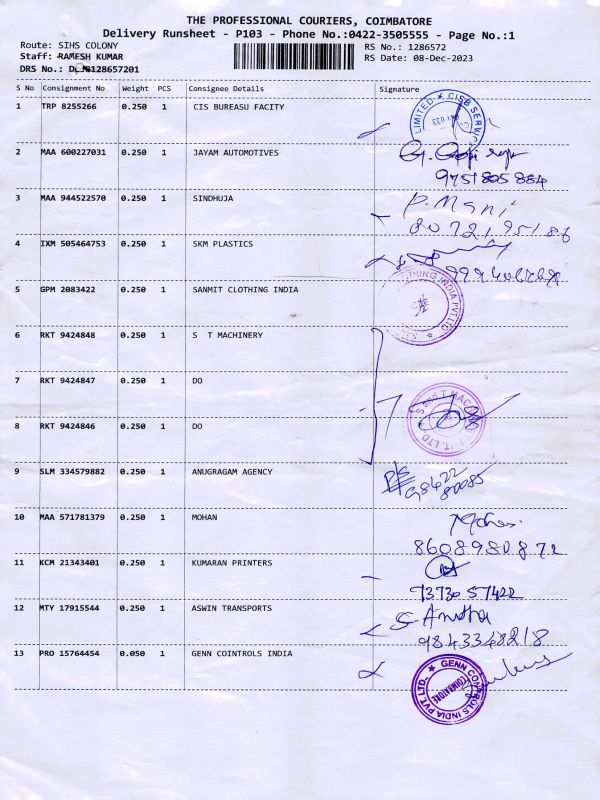 THE PROFESSIONAL COURIERS, COIMBATORE
Delivery Runsheet - P103 - Phone No.:0422-3505555 - Page No.:1
Route: SIHS COLONY RS No.: 1286572
Staff: RAMESH KUMAR RS Date: 08-Dec-2023
DRS No.: 128657201
S No Consignment No Weight PCS Consignee Details Signature
1 TRP 8255266 0.250 1 CIS BUREASU FACITY
LIMITED * CISB SERVI
2 MAA 600227031 0.250 1 JAYAM AUTOMOTIVES
9751805884
3 MAA 944522570 0.250 1 SINDHUJA P. Mani
4 IXM 505464753 0.250 1 SKM PLASTICS
5 GPM 2083422 0.250 1 SANMIT CLOTHING INDIA
THING INDIA PVT.LTD
6 RKT 9424848 0.250 1 S T MACHINERY
7 RKT 9424847 0.250 1 DO
8 RKT 9424846 0.250 1 DO
9 SLM 334579882 0.250 1 ANUGRAGAM AGENCY
98422
80085
10 MAA 571781379 0.250 1 MOHAN Mohan
8608980872
11 KCM 21343401 0.250 1 KUMARAN PRINTERS
73730 57422
12 MTY 17915544 0.250 1 ASWIN TRANSPORTS S. Anitha
9843348218
13 PRO 15764454 0.050 1 GENN COINTROLS INDIA
GENN CONTROLS INDIA PVT LTD.
COIMBATORE